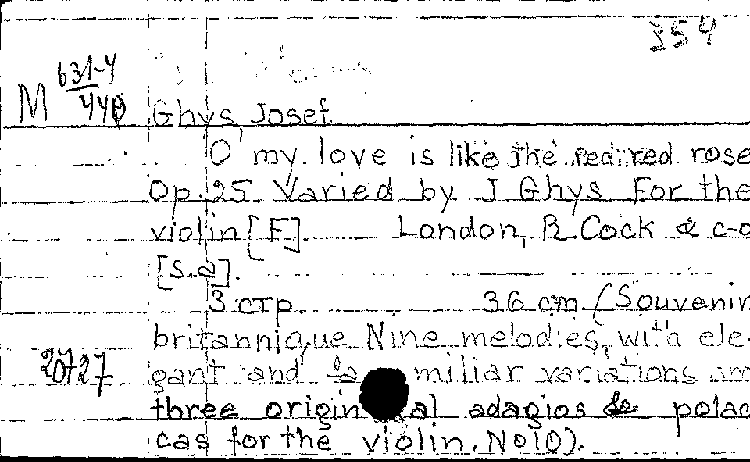 354
M 631-4
440
Ghys, Josef.
O my love is like the red, red rose
Op. 25. Varied by J Ghys For the
violin [F]. London, R. Cock & c-o
[S.a].
3 стр. 36 cm (Souvenir
britannique Nine melodies, with ele-
20727 gant and fa miliar variations
three origin al adagios & polac
cas for the violin. No10).